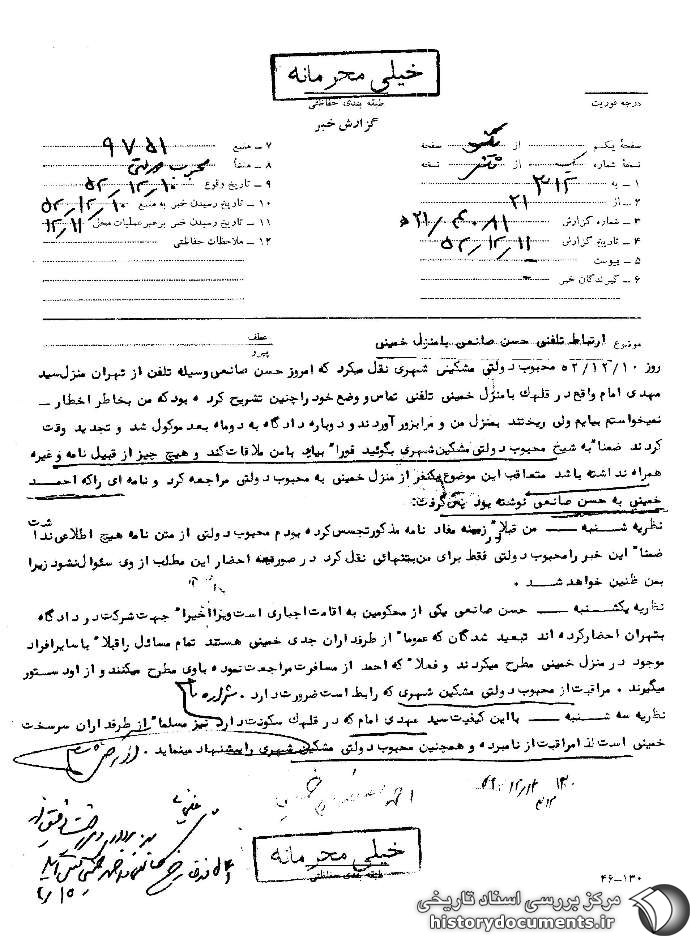 خیلی محرمانه
درجه فوریت
طبقه بندی حفاظتی
گزارش خبر
صفحهٔ یکم از صفحه
نسخهٔ شماره از نسخه
۱ ـ به ۳۱۲
۲ ـ از ۲۱
۳ ـ شماره گزارش
۴ ـ تاریخ گزارش ۵۲/۱۲/۱۱
۵ ـ پیوست ـ
۶ ـ گیرندگان خبر
۷ ـ منبع ۹۷۵۱
۸ ـ منشأ محبوب دولتی
۹ ـ تاریخ وقوع ۵۲/۱۲/۱۰
۱۰ ـ تاریخ رسیدن خبر به منبع ۵۲/۱۲/۱۰
۱۱ ـ تاریخ رسیدن خبر برهبر عملیات محل ۱۲/۱۱
۱۲ ـ ملاحظات حفاظتی
موضوع ارتباط تلفنی حسن صانعی بامنزل خمینی
عطف
پیرو
روز ۵۲/۱۲/۱۰ محبوب دولتی مشکینی شهری نقل میکرد که امروز حسن صانعی وسیله تلفن از تهران منزل سید
مهدی امام واقع در قلهک بامنزل خمینی تلفنی تماس و وضع خود را چنین تشریح کرده بود که من بخاطر اخطار ـ
نمیخواستم بیایم ولی ریختند بمنزل من و مرا بزور آوردند و دوباره دادگاه به دوماه بعد موکول شد و تجدید وقت
کردند ضمنا" به شیخ محبوب دولتی مشکین شهری بگوئید فورا" بیاید با من ملاقات کند و هیچ چیز از قبیل نامه و غیره
همراه نداشته باشد متعاقب این موضوع یکنفر از منزل خمینی به محبوب دولتی مراجعه کرد و نامه ای را که احمد
خمینی به حسن صانعی نوشته بود پس گرفت.
نظریه شنبه ـ من قبلا" در زمینه مفاد نامه مذکور تجسس کرده بودم محبوب دولتی از متن نامه هیچ اطلاعی نداشت
ضمنا" این خبر را محبوب دولتی فقط برای من بتنهائی نقل کرد در صورتیکه احضار این مطلب از وی سئوال نشود زیرا
بمن ظنین خواهد شد .
نظریه یکشنبه ـ حسن صانعی یکی از محکومین به اقامت اجباری است و یرا اخیرا" جهت شرکت در دادگاه
بتهران احضار کرده اند تبعید شدگان که عموما" از طرفداران جدی خمینی هستند تمام مسائل را قبلا" با سایر افراد
موجود در منزل خمینی مطرح میکردند و فعلا" که احمد از مسافرت مراجعت نموده باوی مطرح میکنند و از او دستور
میگیرند . مراقبت از محبوب دولتی مشکین شهری که رابط است ضرورت دارد .
نظریه سه شنبه ـ با این کیفیت سید مهدی امام که در قلهک سکونت دارد نیز مسلما" از طرفداران سرسخت
خمینی است لذا مراقبت از نامبرده و همچنین محبوب دولتی مشکین شهری را پیشنهاد مینماید .
خیلی محرمانه
طبقه بندی حفاظتی
۴۶-۱۳۰
مرکز بررسی اسناد تاریخی
historydocuments.ir